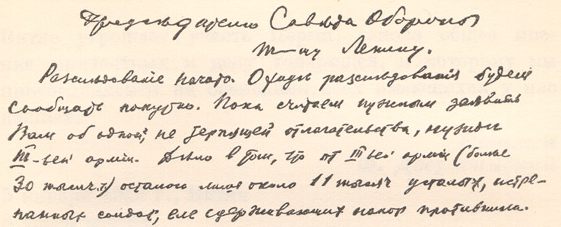 Председателю Совета Обороны
т-щу Ленину.
Расследование начато. О ходе расследования будем
сообщать попутно. Пока считаем нужным заявить
Вам об одной, не терпящей отлагательства, нужде
III-ьей армии. Дело в том, что от III-ьей армии (более
30 тысяч ч.) осталось лишь около 11 тысяч усталых, истре-
панных солдат, еле сдерживающих напор противника.